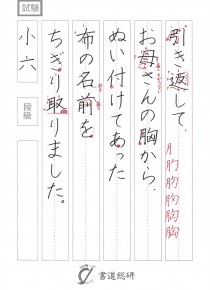 試験
引き返して、
お母さんの胸から、
ぬい付けてあった
布の名前を
ちぎり取りました。
小六
段級
書道総研